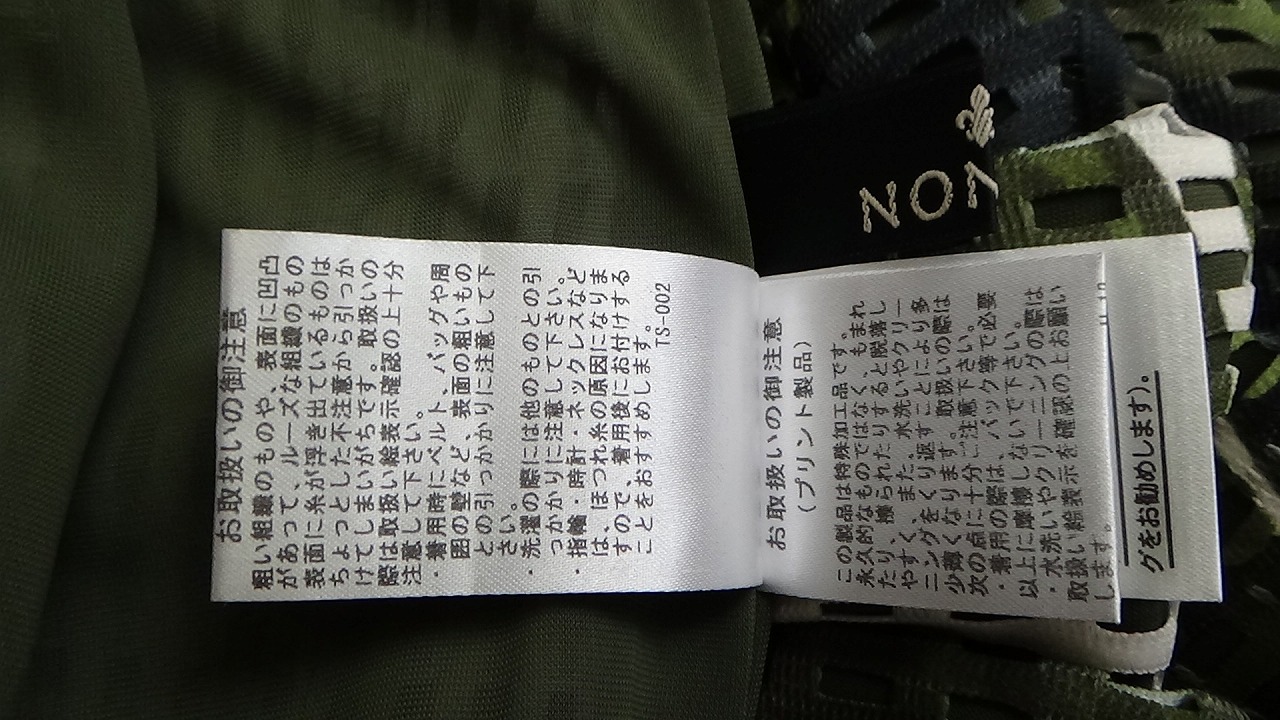 お取扱いの御注意
粗い組織のものや、表面に凹凸
があって、ルーズな組織のもの
表面に糸が浮き出ているものは
ちょっとした不注意から引っか
けてしまいがちです。取扱いの
際は取扱い絵表示確認の上十分
注意して下さい。
・着用時にベルト、バッグや周
囲の壁など、表面の粗いもの
との引っかかりに注意して下
さい。
・洗濯の際には他のものとの引
っかかりに注意して下さい。
・指輪・時計・ネックレスなど
は、ほつれ糸の原因になりま
すので、着用後にお付けする
ことをおすすめします。
TS-002
お取扱いの御注意
(プリント製品)
この製品は特殊加工品です。
永久的なものではなく、もまれ
たり、擦られたりすると脱落し
やすく、また、水洗いやクリー
ニングをくり返すことにより多
少薄くなります。取扱いの際は
次の点に十分ご注意下さい。
・着用の際は、バック等で必要
以上に摩擦しないで下さい。
・水洗いやクリーニングの際は
取扱い絵表示を確認の上お願い
します。
グをお勧めします)。
NO
7